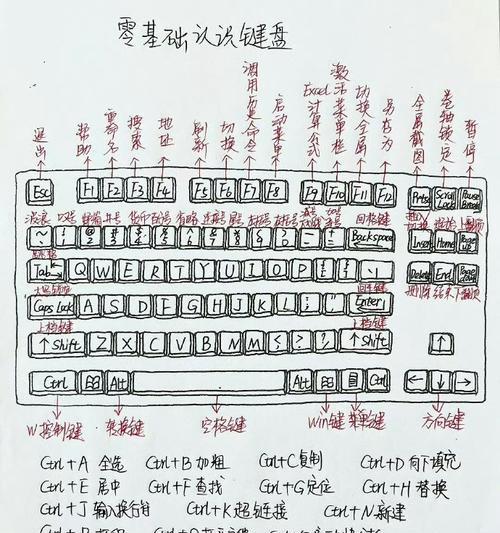 零基础认识键盘
退出 帮助 重命名 搜索 地址 刷新 切换 调用更多命令 启动菜单 Excel计算公式 激活菜单栏 切换全屏 另存为 全屏截图 卷轴锁定 暂停
Esc F1 F2 F3 F4 F5 F6 F7 F8 F9 F10 F11 F12 Prtsc Scroll Lock Pause Break
回格键
Backspace Insert Home Page up
Tab Q W E R T Y U I O P Delete End Page down
回车键 删除 结束 下翻页
Caps Lock A S D F G H J K L Enter
上档键 上档键
↑Shift Z X C V B N M ↑Shift ↑
Ctrl Alt Alt Ctrl ← ↓ →
控制键 转换键 空格键 Win键 菜单键 方向键
Ctrl+A 全选 Ctrl+B 加粗 Ctrl+C 复制 Ctrl+D 向下填充
Ctrl+E 居中 Ctrl+F 查找 Ctrl+G 定位 Ctrl+H 替换
Ctrl+J 输入换行符 Ctrl+K 超链接 Ctrl+N 新建